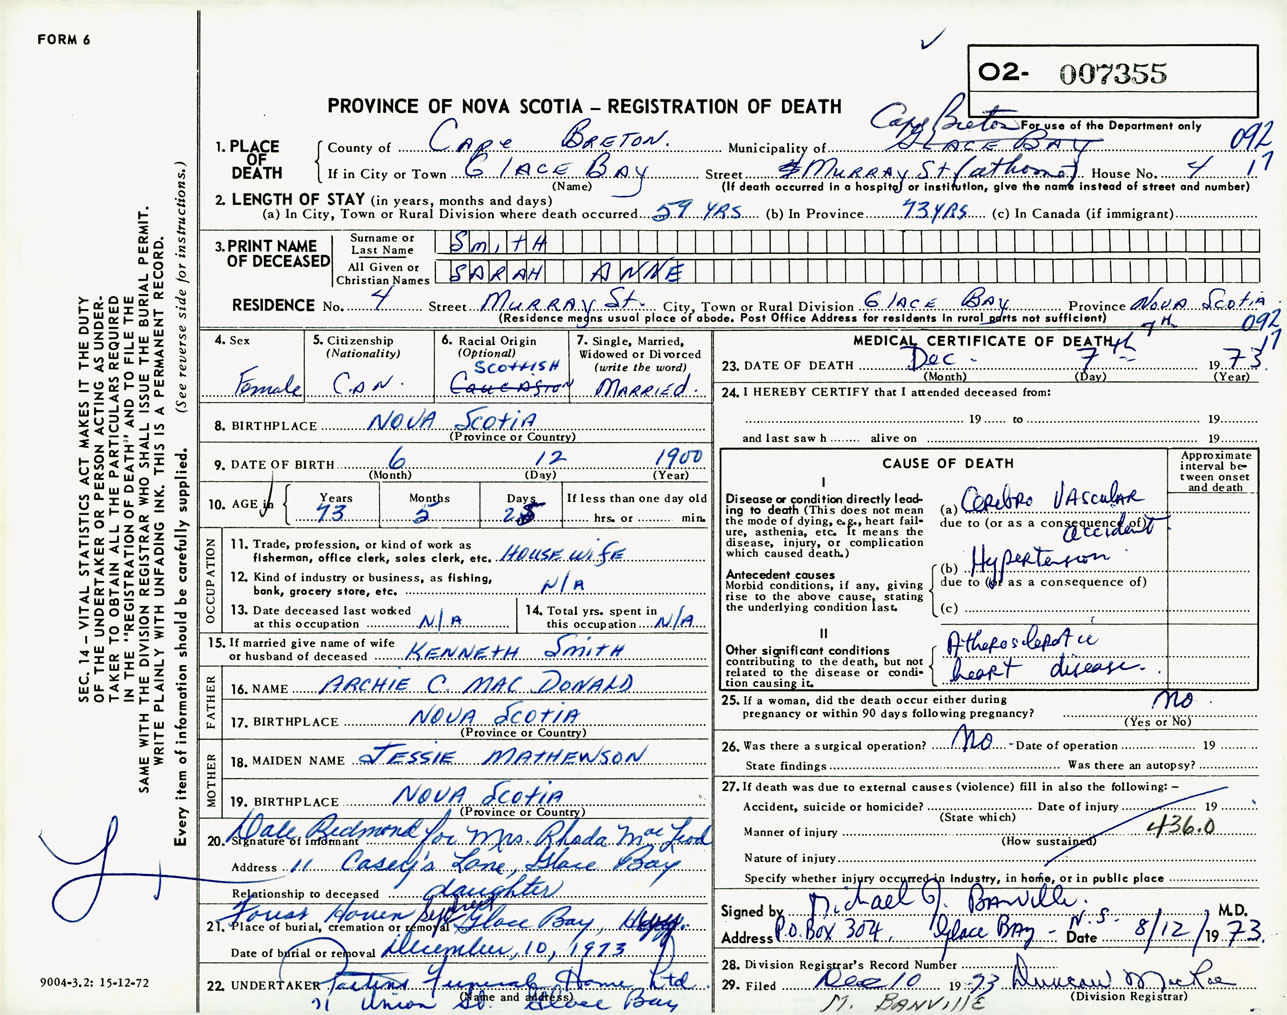 FORM 6
O2- 007355
PROVINCE OF NOVA SCOTIA – REGISTRATION OF DEATH
Cape Breton For use of the Department only
1. PLACE OF DEATH
County of CAPE BRETON. Municipality of GLACE BAY 092
If in City or Town GLACE BAY Street MURRAY ST (at home) House No. 4 17
(Name) (If death occurred in a hospital or institution, give the name instead of street and number)
2. LENGTH OF STAY (in years, months and days)
(a) In City, Town or Rural Division where death occurred 59 YRS (b) In Province 73 YRS (c) In Canada (if immigrant)
3. PRINT NAME OF DECEASED
Surname or Last Name SMITH
All Given or Christian Names SARAH ANNE
RESIDENCE No. 4 Street MURRAY ST. City, Town or Rural Division GLACE BAY Province NOVA SCOTIA
(Residence means usual place of abode. Post Office Address for residents in rural parts not sufficient) 092
17
4. Sex
Female
5. Citizenship
(Nationality)
CAN.
6. Racial Origin
(Optional)
SCOTTISH
CAUCASION
7. Single, Married,
Widowed or Divorced
(write the word)
MARRIED.
8. BIRTHPLACE NOVA SCOTIA
(Province or Country)
9. DATE OF BIRTH 6 12 1900
(Month) (Day) (Year)
10. AGE in Years Months Days If less than one day old
73 5 25 hrs. or min.
OCCUPATION
11. Trade, profession, or kind of work as
fisherman, office clerk, sales clerk, etc. HOUSEWIFE
12. Kind of industry or business, as fishing,
bank, grocery store, etc. N/A
13. Date deceased last worked
at this occupation N/A
14. Total yrs. spent in
this occupation N/A
15. If married give name of wife
or husband of deceased KENNETH SMITH
FATHER
16. NAME ARCHIE C. MAC DONALD
17. BIRTHPLACE NOVA SCOTIA
(Province or Country)
MOTHER
18. MAIDEN NAME JESSIE MATHEWSON
19. BIRTHPLACE NOVA SCOTIA
(Province or Country)
Dale Redmond for Mrs. Rhoda MacLeod
20. Signature of informant
Address 11 Casey's Lane, Glace Bay
Relationship to deceased daughter
Forest Haven Glace Bay,
21. Place of burial, cremation or removal
Date of burial or removal December, 10, 1973
22. UNDERTAKER Funeral Home Ltd.
(Name and address)
Union St. Glace Bay
MEDICAL CERTIFICATE OF DEATH
7th
23. DATE OF DEATH Dec. 7th 1973.
(Month) (Day) (Year)
24. I HEREBY CERTIFY that I attended deceased from:
19 to 19
and last saw h alive on 19
CAUSE OF DEATH
Approximate interval between onset and death
I
Disease or condition directly leading to death (This does not mean the mode of dying, e.g., heart failure, asthenia, etc. It means the disease, injury, or complication which caused death.)
(a) Cerebro VASCULAR
due to (or as a consequence of)
accident
Antecedent causes
Morbid conditions, if any, giving rise to the above cause, stating the underlying condition last.
(b) Hypertension
due to (or as a consequence of)
(c)
II
Other significant conditions
contributing to the death, but not related to the disease or condition causing it.
heart disease.
25. If a woman, did the death occur either during
pregnancy or within 90 days following pregnancy? No
(Yes or No)
26. Was there a surgical operation? No Date of operation 19
State findings Was there an autopsy?
27. If death was due to external causes (violence) fill in also the following: –
Accident, suicide or homicide? Date of injury 19
(State which)
Manner of injury 436.0
(How sustained)
Nature of injury
Specify whether injury occurred in Industry, in home, or in public place
Signed by Michael J. Banville M.D.
Address P.O. Box 304, Glace Bay - N.S. Date 8/12/1973.
28. Division Registrar's Record Number
29. Filed Dec 10 1973 Duncan MacRae
(Division Registrar)
M. BANVILLE
SEC. 14 – VITAL STATISTICS ACT MAKES IT THE DUTY
OF THE UNDERTAKER OR PERSON ACTING AS UNDER-
TAKER TO OBTAIN ALL THE PARTICULARS REQUIRED
IN THE "REGISTRATION OF DEATH" AND TO FILE THE
SAME WITH THE DIVISION REGISTRAR WHO SHALL ISSUE THE BURIAL PERMIT.
WRITE PLAINLY WITH UNFADING INK. THIS IS A PERMANENT RECORD.
Every item of information should be carefully supplied. (See reverse side for instructions.)
9004-3.2: 15-12-72